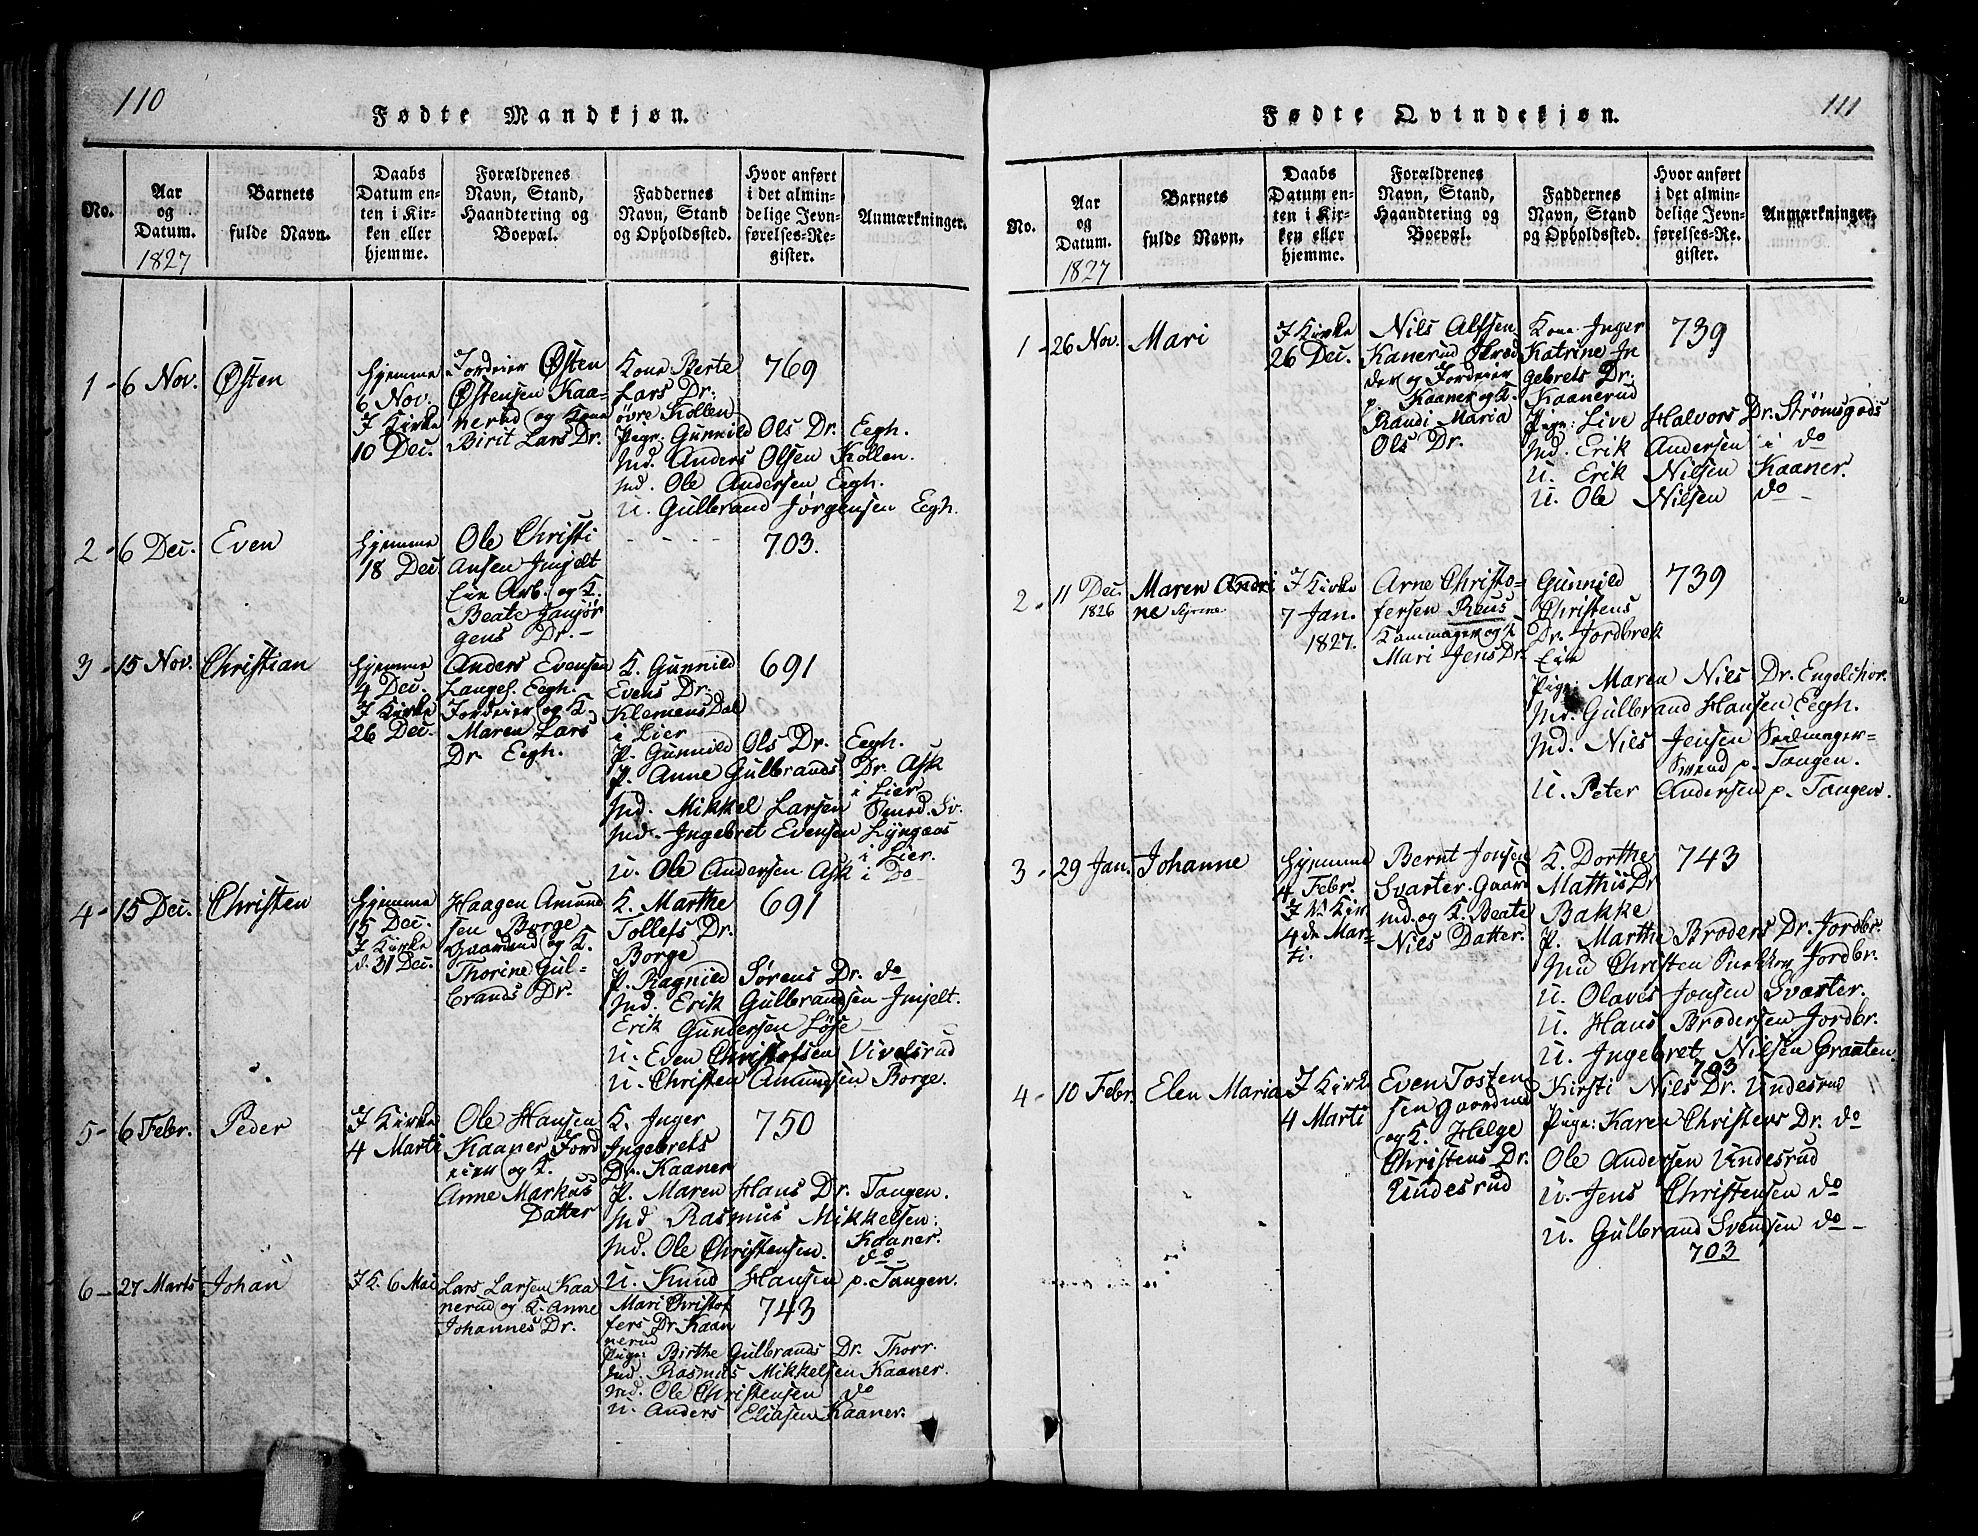 110
Fødte Mandkjøn.
No.
Aar
og
Datum.
1827
Barnets
fulde Navn.
Daabs
Datum en-
ten i Kir-
ken eller
hjemme.
Forældrenes
Navn, Stand,
Haandtering og
Boepæl.
Faddernes
Navn, Stand
og Opholdssted.
Hvor anført
i det almin-
delige Jevn-
førelses-Re-
gister.
Anmærkninger.
1 - 6 Nov. Østen
Hjemme
6 Nov.
I Kirke
10 Dec.
Jordeier Østen
Østensen Kaa-
nerud og Kone
Birit Lars Dr.
Kone Berte
Lars Dr:
øvre Kollen
Pige: Gunnild Ols Dr. Eegh.
Md. Anders Olsen Kollen.
Md. Ole Andersen Eegh.
U. Gulbrand Jørgensen Eegh.
769
2 - 6 Dec. Even
Hjemme
18 Dec
Ole Christi
Ansen Imjelt
Eie Arb. og K.
Beate Hansjør
gens Dr. -
- - - -
703.
3 - 15 Nov. Christian
Hjemme
4 Dec.
I Kirke
26 Dec.
Anders Evensen
Langes. Eegh.
Jordeier og K.
Maren Lars
Dr Eegh.
K. Gunnild
Evens Dr.
Klemens Dal
i Lier
P. Gunnild Ols Dr. Eegh.
P. Anne Gulbrands Dr. Ask
i Lier
Md. Mikkel Larsen Smed. Sv.
Md. Ingebret Evensen Lyngaas
i Lier.
U. Ole Andersen Ask i Do
691
4 - 15 Dec. Christen
Hjemme
15 Dec.
I Kirke
d. 31 Dec.
Haagen Amund
sen Borge
Gaardmd og K.
Thorine Gul-
brands Dr.
K. Marthe
Tollefs Dr.
Borge
P. Ragnild Sørens Dr. do
Md. Erik Gulbrandsen Imjelt.
Erik Gundersen Løse
U. Even Christofsen Vivelsrud
U. Christen Amundsen Borge.
691
5 - 6 Febr. Peder
I Kirke
4 Marti
Ole Hansen
Kaaner Jord
eier og K.
Anne Markus
Datter
K. Inger
Ingebrets
Dr. Kaaner
P. Maren Hans Dr. Tangen.
Md Rasmus Mikkelsen:
Kaaner.
Md. Ole Christensen. do
U. Knud Hansen p. Tangen.
750
6 - 27 Marts Johan
I K. 6 Mai
Lars Larsen Kaa
nerud og K. Anne
Johannes Dr.
Mari Christof
fers Dr. Kaan
nerud
Pige: Birthe Gulbrands Dr. Thorr.
Md. Rasmus Mikkelsen Kaaner.
Md. Ole Christensen do
U. Anders Eliasen Kaaner.
743
111
Fødte Qvindekjøn.
No.
Aar
og
Datum.
1827
Barnets
fulde Navn.
Daabs
Datum en-
ten i Kir-
ken eller
hjemme.
Forældrenes
Navn, Stand,
Haandtering og
Boepæl.
Faddernes
Navn, Stand
og Opholdssted.
Hvor anført
i det almin-
delige Jevn-
førelses-Re-
gister.
Anmærkninger.
1 - 26 Nov. Mari
I Kirke
26 Dec.
Nils Alfsen
Kanerud Skræd
der og Jordeier
p. Kaaner og K.
Randi Maria
Ols Dr.
Kone Inger
Katrine In
gebrets Dr.
Kaanerud
Pige: Live Halvors Dr. Strømsgods
Md. Erik Andersen i do
U. Erik Nilsen Kaaner.
U. Ole Nilsen do
739
2 - 11 Dec. 1826
Maren Andri
ne
I Kirke
7 Jan.
1827.
Arne Christo-
fersen Reus
Kammager og K
Mari Jens Dr
Gunnild
Christens
Dr. Jordbrek
Eie
Pige: Maren Nils Dr. Engelchor.
Md. Gulbrand Hansen Eegh.
Md. Nils Jensen Seilmager-
Svend p. Tangen.
U. Peter Andersen p. Tangen.
739
3 - 29 Jan. Johanne
Hjemme
4 Febr.
I Kir
4de Mar-
ti.
Bernt Jonsen
Svarter. Gaar
md. og K. Beate
Nils Datter.
K. Dorthe
Mathis Dr
Bakke
P. Marthe Broders Dr. Jordbr.
Md Christen Jordbr.
U. Olaves Jonsen Svarter.
U. Hans Brodersen Jordbr.
U. Ingebret Nilsen Graaten.
743
4 - 10 Febr. Elen Maria
I Kirke
4 Marti
Even Tosten
sen Gaardmd
og K. Helge
Christens Dr.
Undesrud
703
Kirsti Nils Dr. Undesrud
Pige: Karen Christens Dr. do
Ole Andersen Undesrud
U. Jens Christensen do
U. Gulbrand Svendsen do -
703